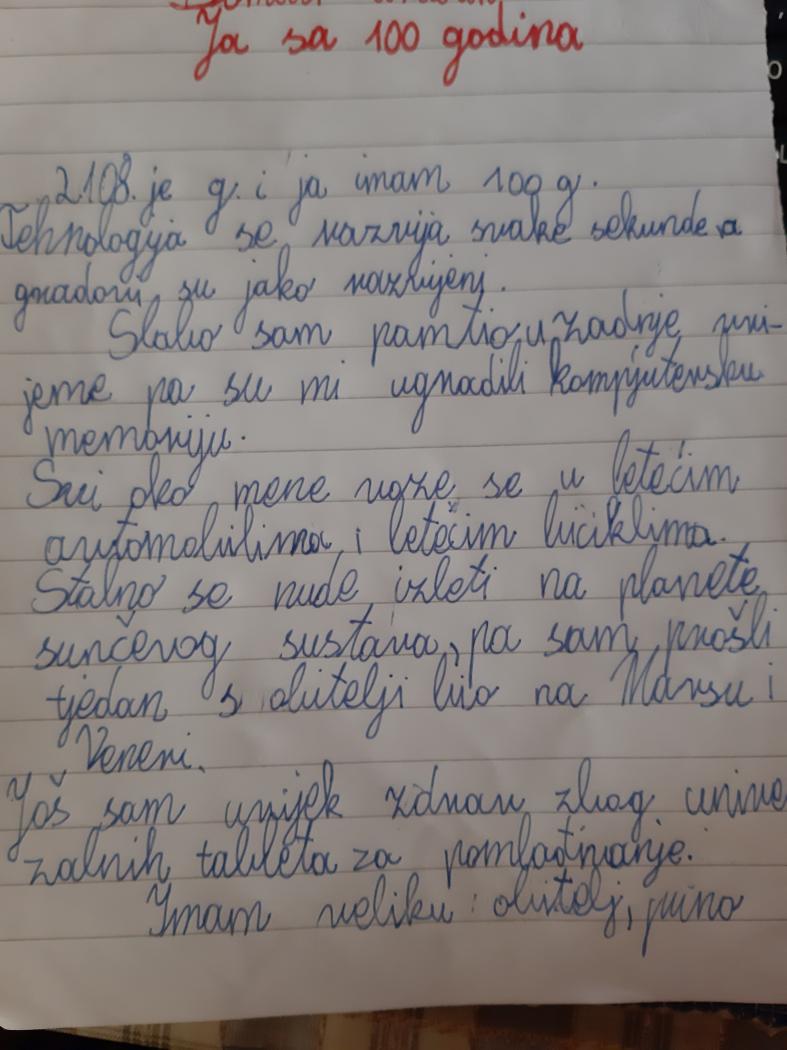 Ja sa 100 godina
2108. je g. i ja imam 100 g.
Tehnologija se razvija svake sekunde a
gradovi su jako razvijeni.
Slabo sam pamtio u zadnje vri-
jeme pa su mi ugradili kompjutersku
memoriju.
Svi oko mene voze se u letećim
automobilima i letećim biciklima.
Stalno se nude izleti na planete
sunčevog sustava, pa sam prošli
tjedan s obitelji bio na Marsu i
Veneri.
Još sam uvijek zdrav zbog unive
zalnih tableta za pomlađivanje.
Imam veliku obitelj, puno